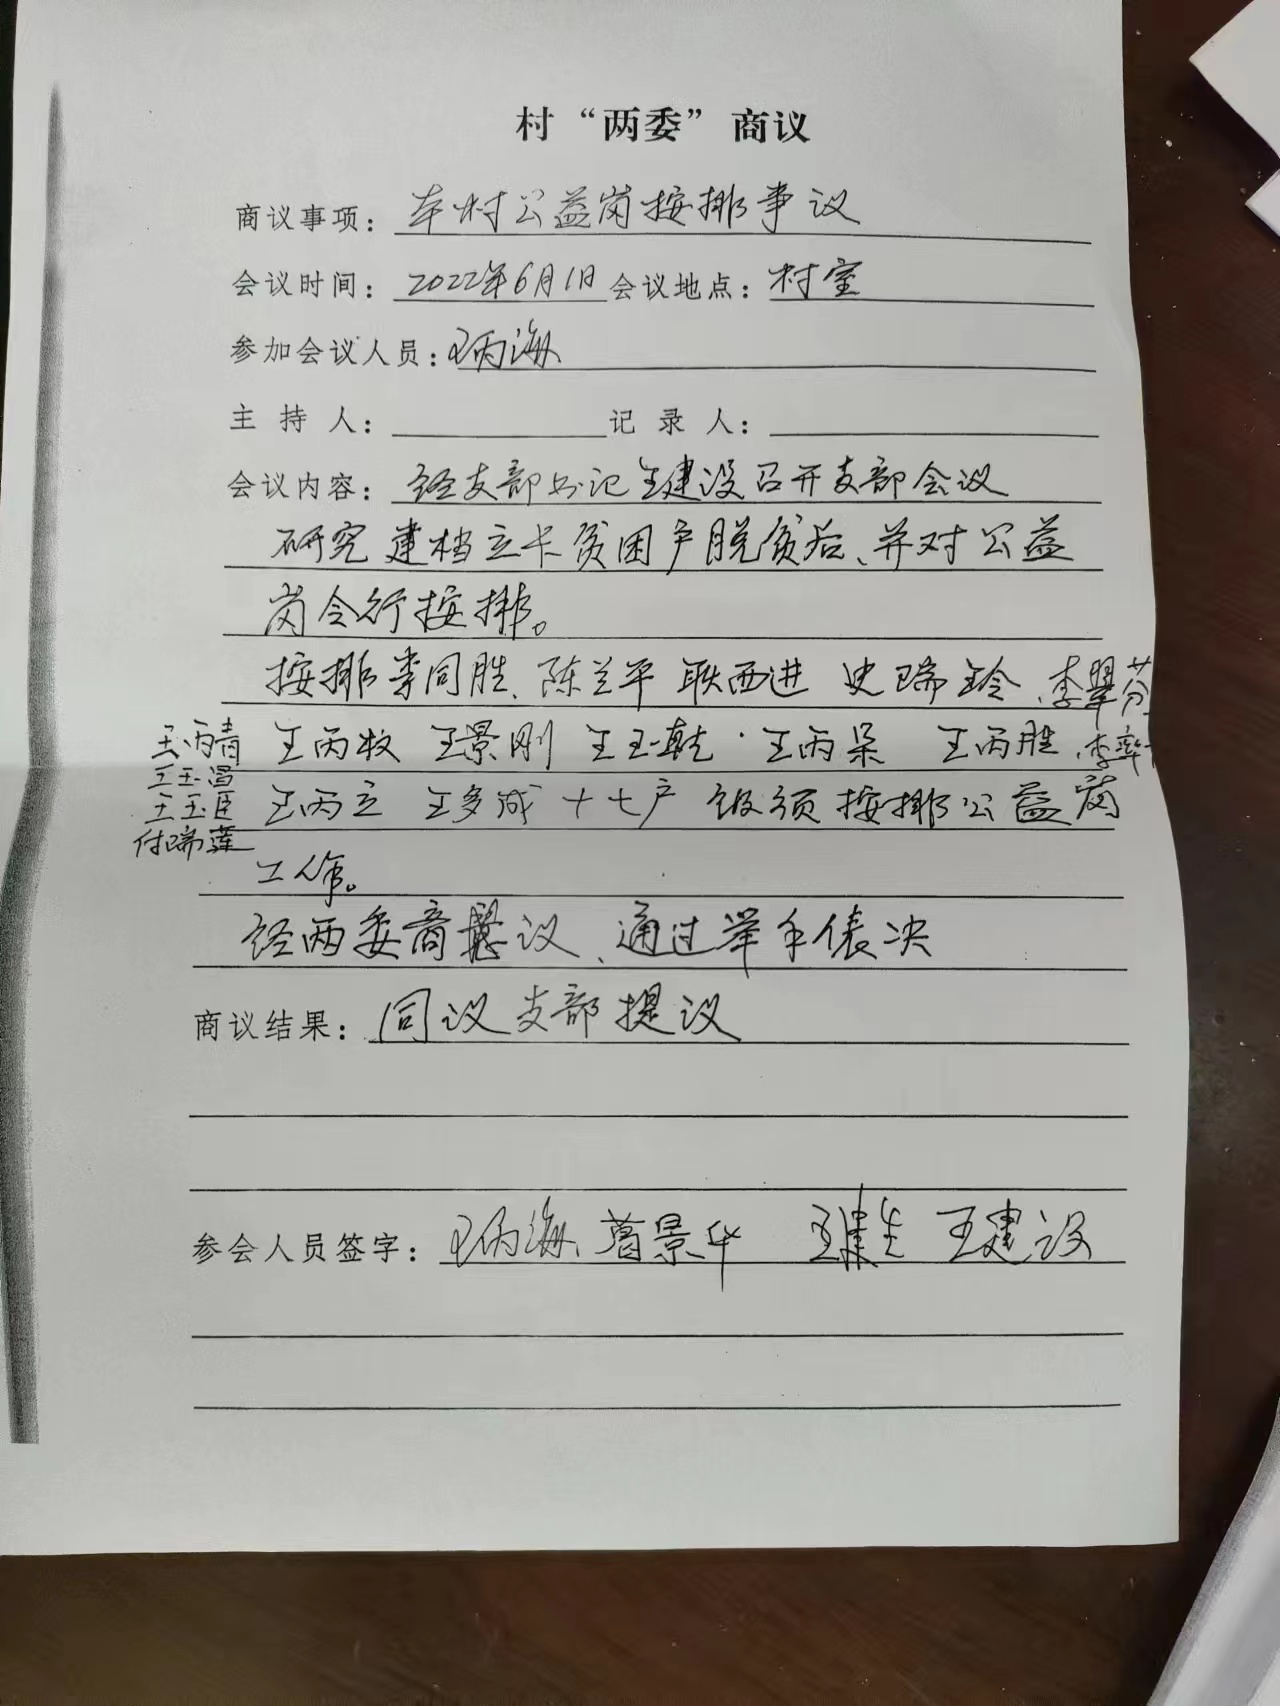 村“两委”商议
商议事项：本村公益岗按排事议
会议时间：2022年6月1日 会议地点：村室
参加会议人员：王丙海
主 持 人： 记 录 人：
会议内容：经支部书记王建设召开支部会议
研究建档立卡贫困户脱贫后、并对公益
岗令行按排。
按排李同胜、陈兰平 耿西进 史瑞玲、李翠芬
王丙青 王丙牧 王景刚 王玉乾·王丙呆 王丙胜、李
王玉温
王玉臣 王丙立 王多成 十七户 须按排公益岗
付瑞莲
工作。
经两委商议、通过举手俵决
商议结果：同议支部提议
参会人员签字：王丙海 葛景华 王建生 王建设